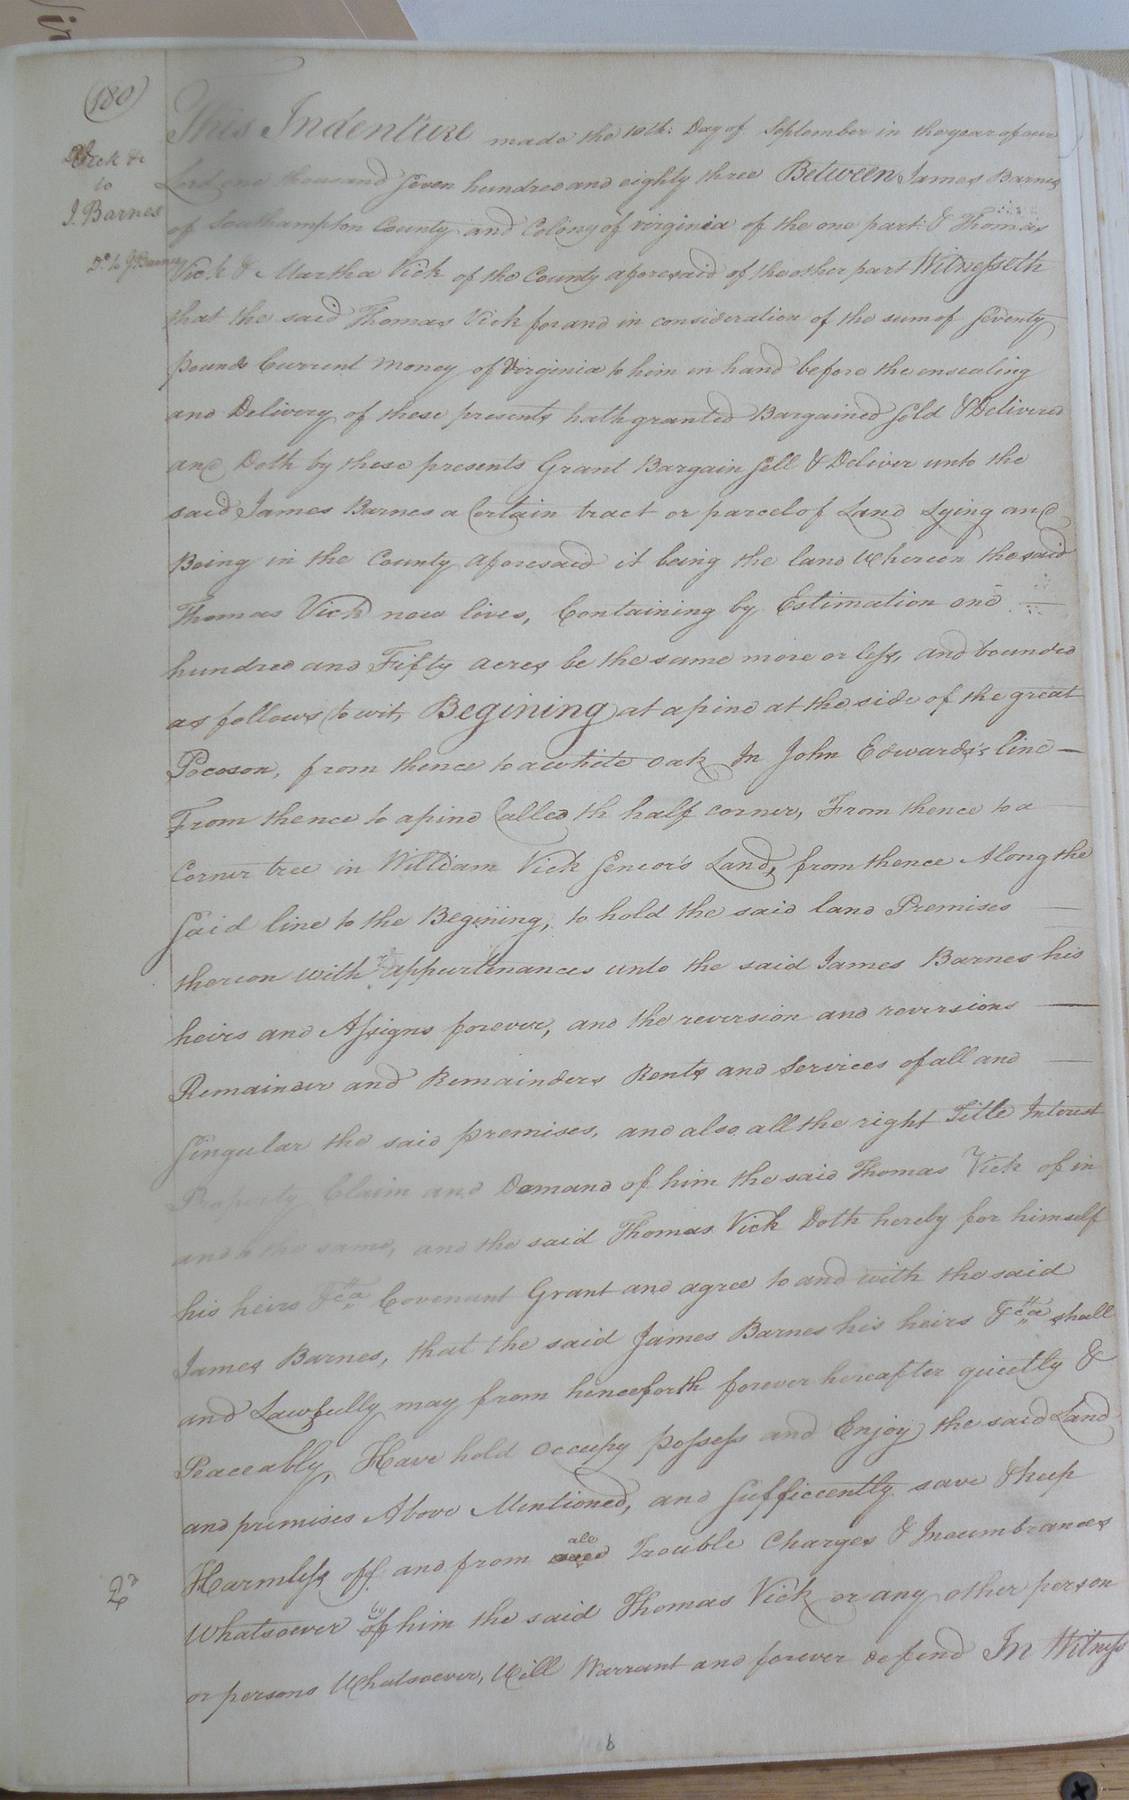 (180)
Vick &c
to
J. Barnes
Do. to J Barnes
This Indenture made the 10th: Day of September in the year of our
Lord one thousand Seven hundred and eighty three Between James Barnes
of Southampton County and Colony of virginia of the one part & Thomas
Vick & Martha Vick of the County aforesaid of the other part Witnesseth
that the said Thomas Vick for and in consideration of the sum of Seventy
pounds Current money of Virginia to him in hand before the ensealing
and Delivery of these presents hath granted Bargained Sold & Delivered
and Doth by these presents Grant Bargain Sell & Deliver unto the
said James Barnes a Certain tract or parcel of Land Lying and
Being in the County aforesaid it being the land whereon the said
Thomas Vick now lives, Containing by Estimation one
hundred and Fifty acres be the same more or less, and bounded
as follows to wit, Begining at a pine at the side of the great
Pocoson, from thence to a white oak In John Edwards's line
From thence to a pine Called th half corner, From thence to a
Corner tree in William Vick Senior's Land, from thence Along the
Said line to the Begining, to hold the said land Premises
thereon with appurtenances unto the said James Barnes his
heirs and Assigns forever, and the reversion and reversions
Remainder and Remainders Rents and Services of all and
Singular the said premises, and also all the right Title Interest
Property Claim and Demand of him the said Thomas Vick of in
and to the same, and the said Thomas Vick Doth hereby for himself
his heirs &ca Covenant Grant and agree to and with the said
James Barnes, that the said James Barnes his heirs &ca shall
and Lawfully may from henceforth forever hereafter quietly &
Peaceably, Have hold occupy possess and Enjoy the said Land
and premises Above Mentioned, and Sufficcently save & keep
Harmless off and from all Trouble Charges & Incumbrances
Whatsoever by him the said Thomas Vick or any other person
or persons Whatsoever, Will Warrant and forever defend In Witness
b